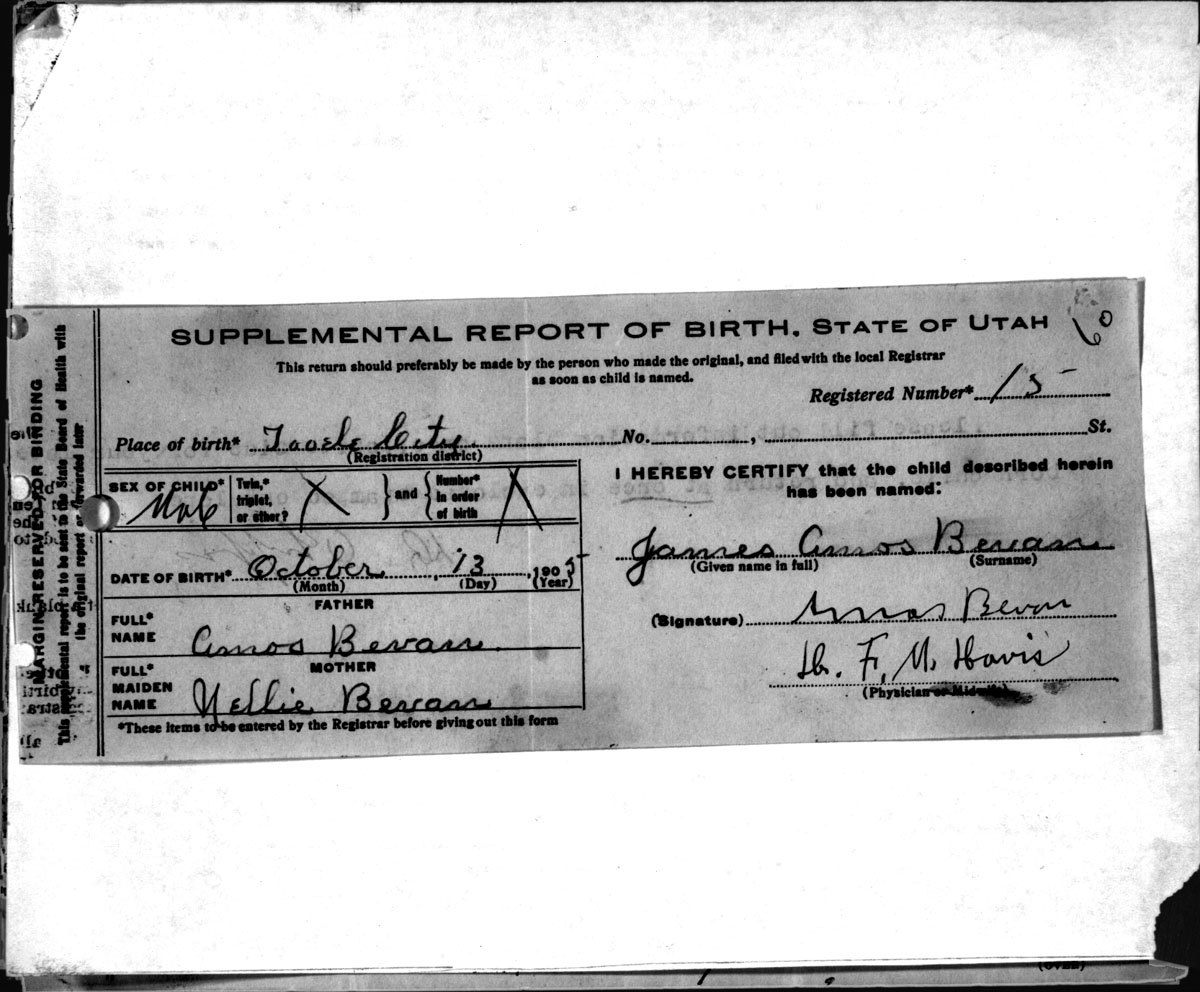 SUPPLEMENTAL REPORT OF BIRTH. STATE OF UTAH
60
This return should preferably be made by the person who made the original, and filed with the local Registrar
as soon as child is named.
Registered Number* 15
Place of birth* Tooele City No. , St.
(Registration district)
SEX OF CHILD* Male
Twin,* triplet, or other? X } and { Number* in order of birth X
DATE OF BIRTH* October , 13 , 1905
(Month) (Day) (Year)
FATHER
FULL* NAME Amos Bevan.
MOTHER
FULL* MAIDEN NAME Nellie Bevan
*These items to be entered by the Registrar before giving out this form
I HEREBY CERTIFY that the child described herein
has been named:
James Amos Bevan
(Given name in full) (Surname)
(Signature) Amos Bevan
Dr. F. M. Davis
(Physician or Midwife)
MARGIN RESERVED FOR BINDING
This supplemental report is to be sent to the State Board of Health with
the original report or forwarded later
(OVER)